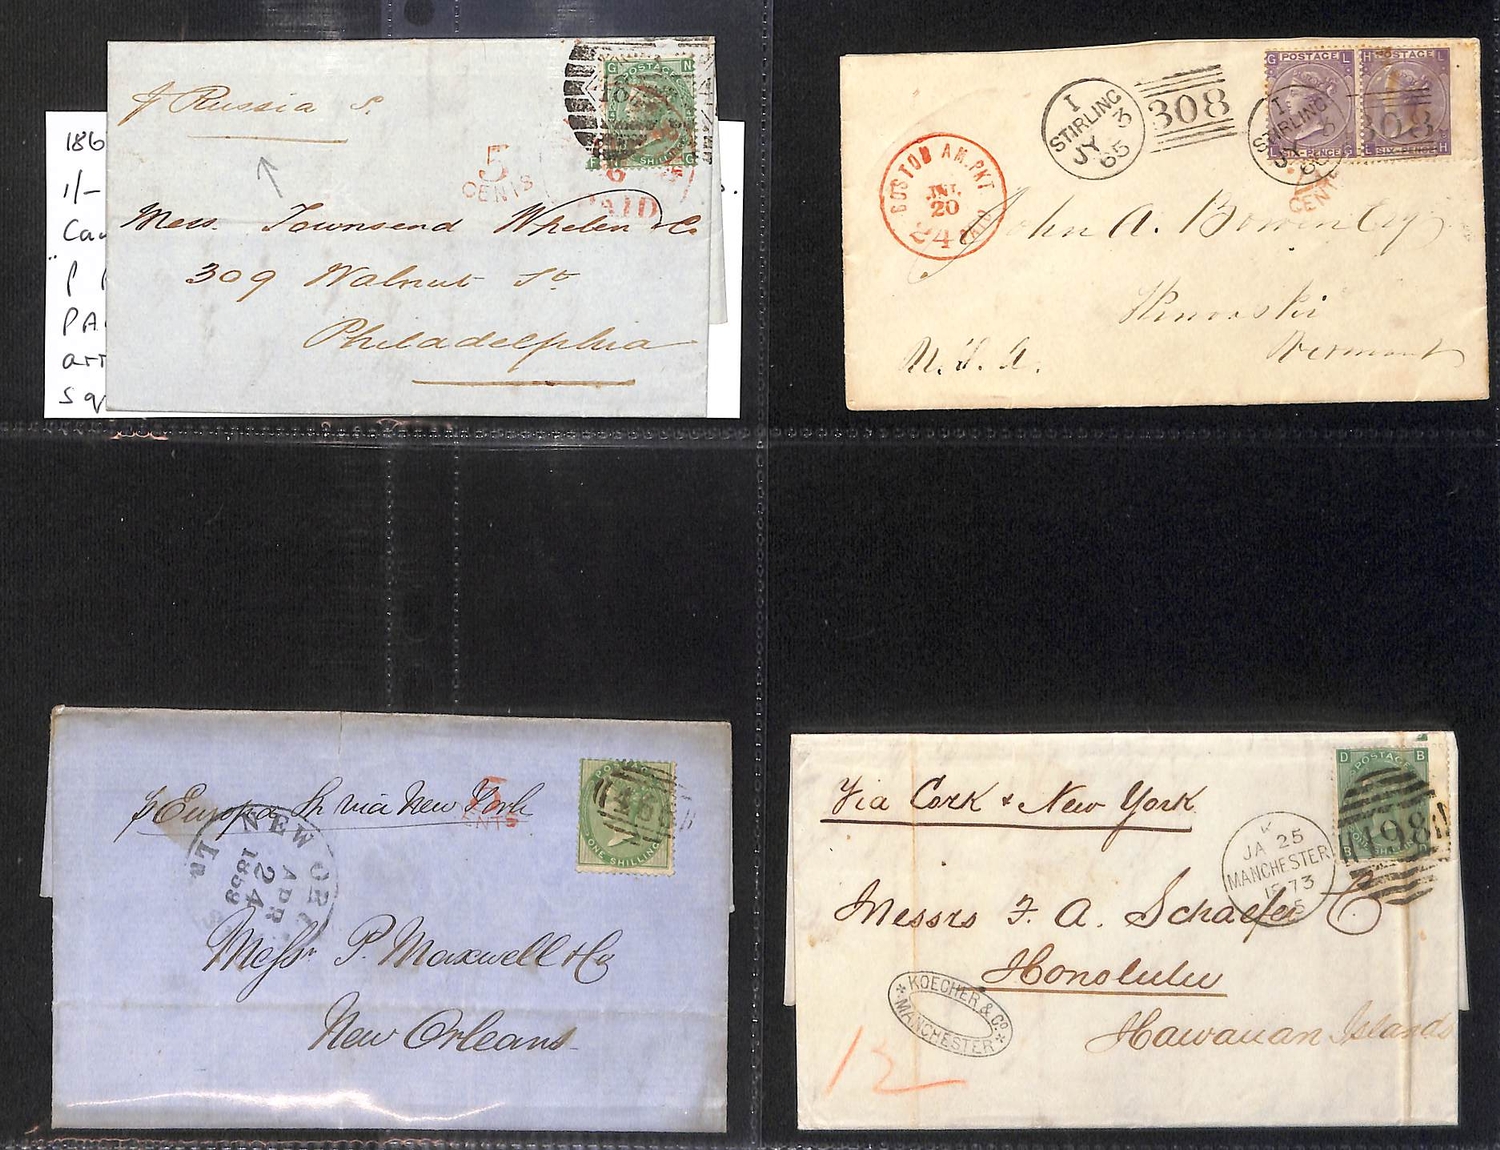 186
1/-
Ca
P
PA
arr
sq
p Russia S.
G POSTAGE N
F SHILLING G
5
CENTS
PAID
Messrs. Townsend Whelen & Co
309 Walnut St
Philadelphia
I
STIRLING
JY 3
65
308
G POSTAGE L
SIX-PENCE
H POSTAGE L
L SIX-PENCE H
I
STIRLING
JY 3
65
308
CENTS
BOSTON AM. PKT
JUL
20
24 PAID
John A. Bowen Esq
Vermont
U.S.A.
p Europa Sr via New York
5
CENTS
ONE SHILLING
NEW OR
APR
24
1859
La
Messrs P. Maxwell & Co
New Orleans
Via Cork & New York
D POSTAGE B
B D
498
K
JA 25
MANCHESTER
1873
Messrs F. A. Schaefer Co
Honolulu
Hawaiian Islands
KOECHER & Co.
MANCHESTER
12